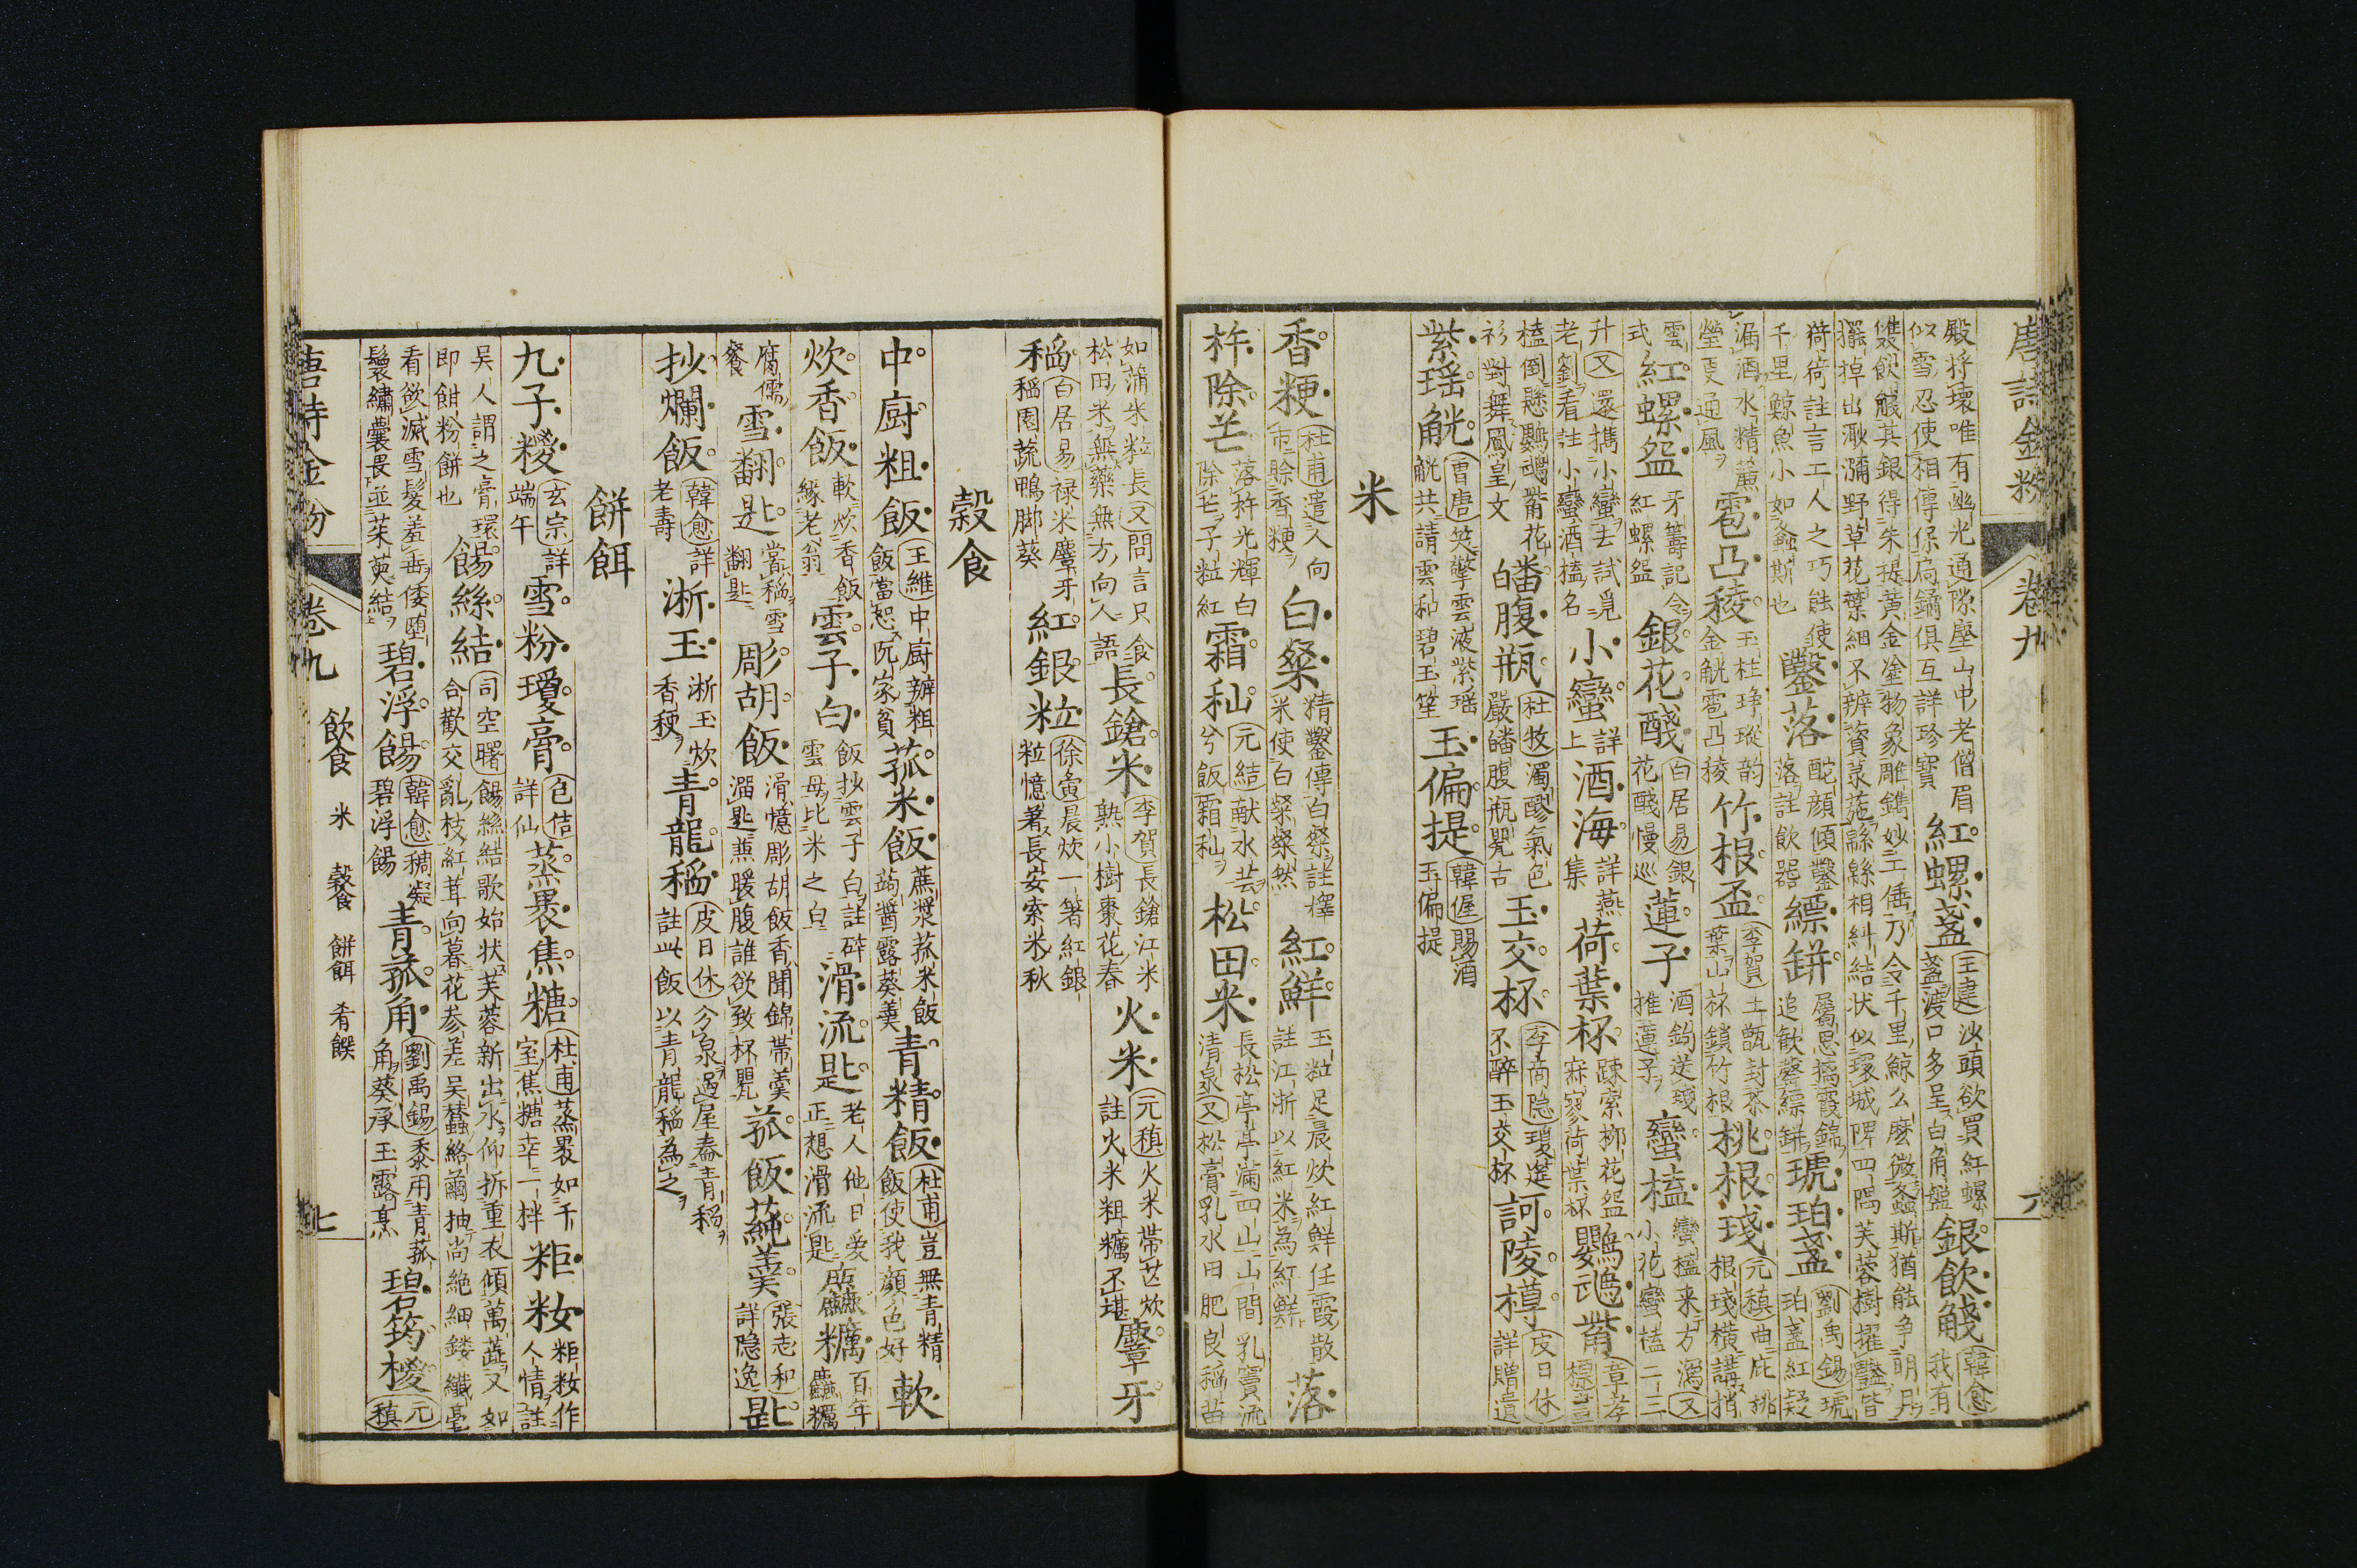 唐詩金粉 卷九 六
殿將壞唯有幽光通隙塵山中老僧眉
似雪忍使相傳保扃鐍俱互詳珍寶
紅螺盞
王建 沙頭欲買紅螺
盞渡口多呈白角盤
銀飲觥
韓愈
我有
雙飲觥其銀得朱提黃金塗物象雕鐫妙工倕乃令千里鯨么麼微螽斯猶能爭明月
擺掉出渺瀰野草花葉細不辨資菉葹緜緜相糾結狀似環城陴四隅芙蓉樹擢豔皆
猗猗註言工人之巧能使
千里鯨魚小如螽斯也
鑿落
酡顏傾鑿
落註飲器
縹缾
屬思摛霞錦
追歡罄縹缾
琥珀盞
劉禹錫 琥
珀盞紅疑
漏酒水精簾
瑩更通風
雹凸稜
玉柱琤瑽韵
金觥雹凸稜
竹根盃
李賀 土甑封茶
葉山杯鎖竹根
桃根琖
元稹 曲庇桃
根琖橫講捎
雲
式
紅螺盌
牙籌記令
紅螺盌
銀花醆
白居易 銀
花醆慢巡
蓮子
酒鈎送琖
推蓮子
蠻榼
蠻榼来方瀉 又
小花蠻榼二三
升 又 還攜小蠻去試覓
老劉看註小蠻酒榼名
小蠻
詳
上
酒海
詳燕
集
荷葉杯
疎索柳花盌
寂寥荷葉杯
鸚鵡觜
章孝
標 畫
榼倒懸鸚鵡觜花
衫對舞鳳皇文
皤腹瓶
杜牧 濁醪氣色
嚴皤腹瓶甖古
玉交杯
李商隱 瓊筵
不醉玉交杯
訶陵樽
皮日休
詳贈遺
紫瑶觥
曹唐 笑擎雲液紫瑶
觥共請雲和碧玉笙
玉偏提
韓偓 賜酒
玉偏提
米
香粳
杜甫 遣人向
市賒香粳
白粲
精鑿傳白粲註擇
米使白粲粲然
紅鮮
玉粒足晨炊紅鮮任霞散
註江浙以紅米為紅鮮
落
杵除芒
落杵光輝白
除芒子粒紅
霜秈
元結 献水芸
兮飯霜秈
松田米
長松亭亭滿四山山間乳竇流
清泉 又 松膏乳水田肥良稻苗
如蒲米粒長 又 問言只食
松田米無藥無方向人語
長鎗米
李賀 長鎗江米
熟小樹棗花春
火米
元稹 火米帶芒炊
註火米粗糲不堪
麞牙
稻
白居易 禄米麞牙
稻園蔬鴨脚葵
紅銀粒
徐夤 晨炊一箸紅銀
粒憶著長安索米秋
穀食
中厨粗飯
王維 中厨辦粗
飯當恕阮家貧
菰米飯
蔗漿菰米飯
蒟醬露葵羹
青精飯
杜甫 豈無青精
飯使我顏色好
軟
炊香飯
軟炊香飯
緣老翁
雲子白
飯抄雲子白註碎
雲母比米之白
滑流匙
老人他日愛
正想滑流匙
麤糲
百年
麤糲
腐儒
餐
雪翻匙
嘗稻雪
翻匙
彫胡飯
滑憶彫胡飯香聞錦帶羹
溜匙蒹暖腹誰欲致杯甖
菰飯蒓羹
張志和
詳隐逸
匙
抄爛飯
韓愈 詳
老壽
淅玉
淅玉炊
香稉
青龍稻
皮日休 分泉過屋舂青稻
註此飯以青龍稻為之
餅餌
九子糉
玄宗 詳
端午
雪粉瓊膏
包佶
詳仙
蒸裹焦糖
杜甫 蒸裹如千
室焦糖幸一柈
粔籹
粔籹作
人情註
吳人謂之膏環
即餌粉餅也
餳絲結
司空曙 餳絲結歌始状芙蓉新出水仰拆重衣傾萬蘂又如
合歡交亂枝紅茸向暮花参差吳蠶絡繭抽尚絶細鏤纖毫
看欲減雪髮羞垂倭堕
鬟繡囊畏並茱萸結
碧浮餳
韓愈 稠凝
碧浮餳
青菰角
劉禹錫 黍用青菰
角葵承玉露烹
碧筠糉
元
稹
唐詩金粉 卷九 飲食 米 穀食 餅餌 肴饌 七